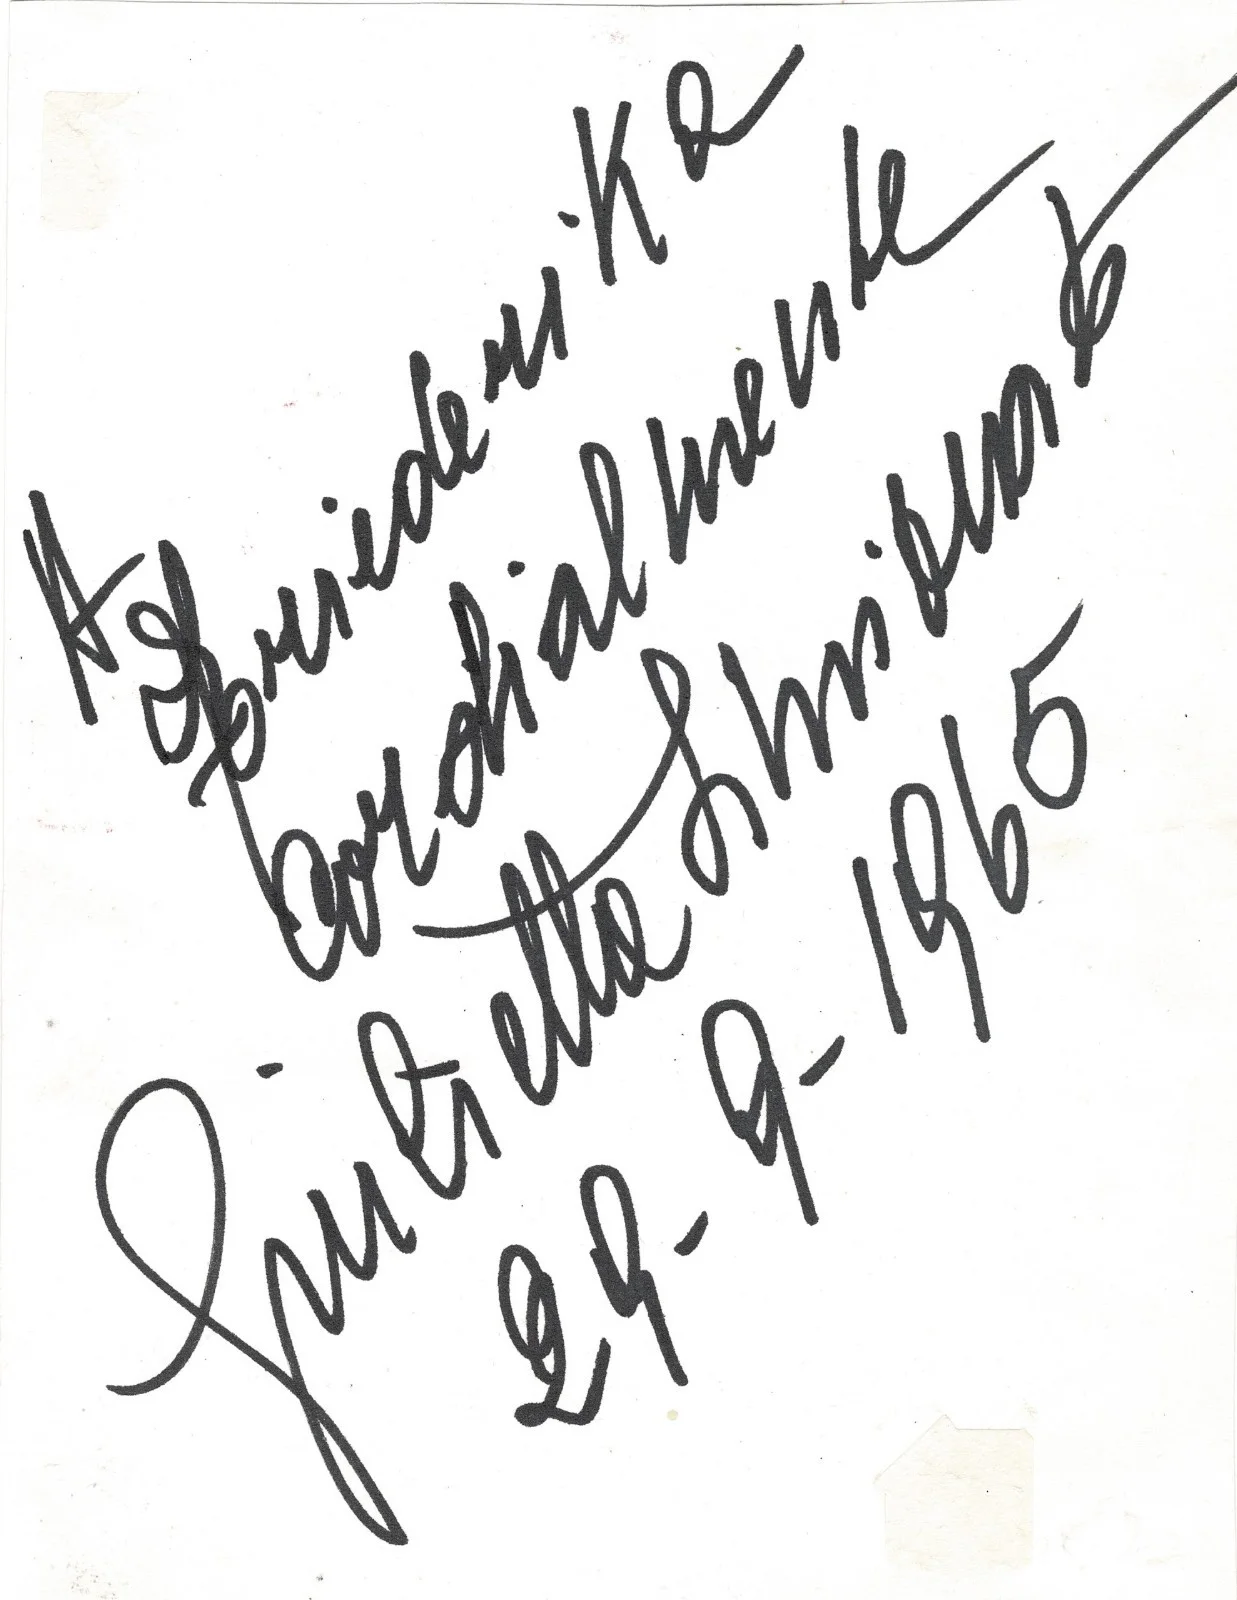 A Friederika
cordialmente
Giulietta Simionato
29-9-1965